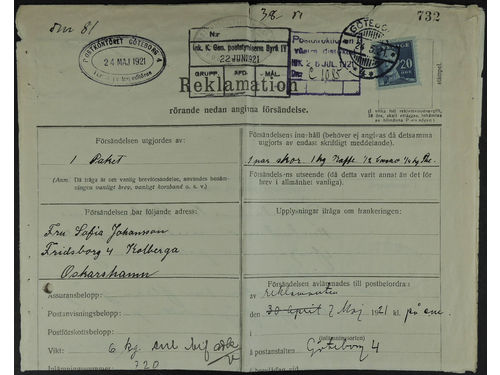 38
732
POSTKONTORET GÖTEBORG 4
24 MAJ 1921
N:r
Ink. K. Gen. poststyrelsens Byrå IV
22 JUNI 1921
GRUPP. AFD. MÅL.
GÖTEBORG
24. 5. 21
20
Reklamation
rörande nedan angivna försändelse.
Försändelsen utgjordes av:
1 Paket
(Anm. Då fråga är om vanlig brevförsändelse, användes benämningen vanligt brev, vanligt korsband o. s. v.)
Försändelsen bar följande adress:
Fru Sofia Johansson
Fridsborg 4 Kolberga
Oskarshamn
Assuransbelopp:
Postanvisningsbelopp:
Postförskottsbelopp:
Vikt: 6 kg. enl.
Inlämningsnummer: 220
Försändelsens inne-håll (behöver ej angivas då detsamma
utgjorts av endast skriftligt meddelande):
1 par skor. 1 kg Kaffe.
Försändelsens utseende (då detta varit annat än det för
brev i allmänhet vanliga).
Upplysningar ifråga om frankeringen:
Försändelsen avlämnades till postbefordran:
av reklamanten
den 30 april 2 Maj 1921 kl.
(inlämningsorten)
å postanstalten Göteborg 4